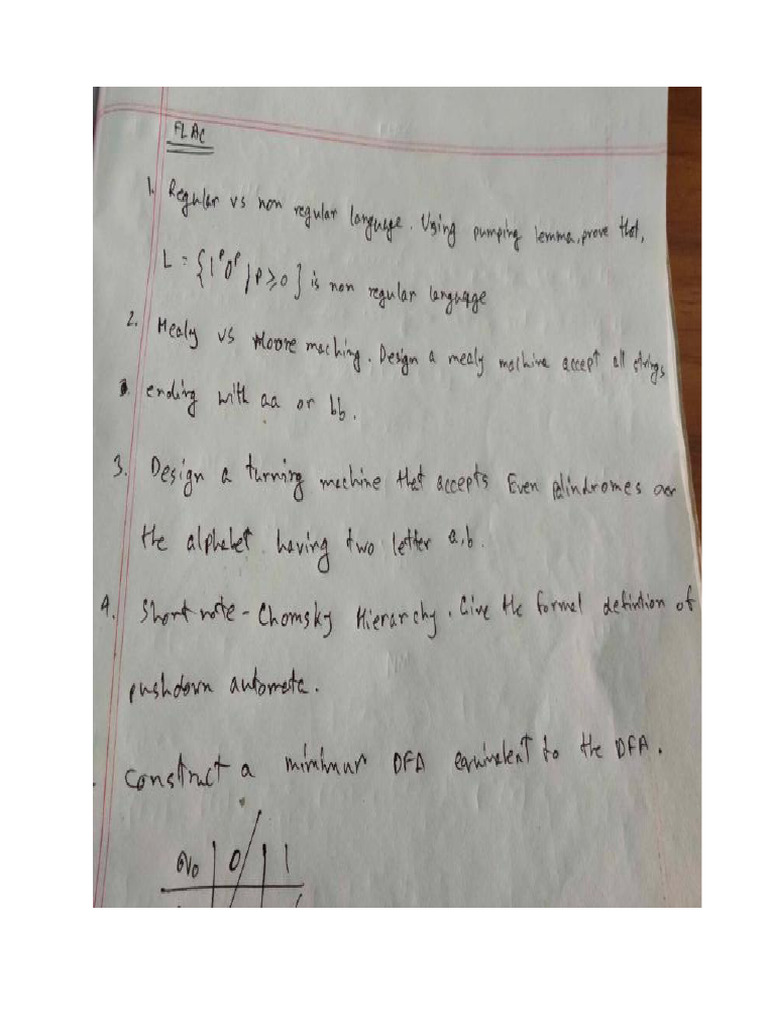 FLAC
1. Regular vs non regular language. Using pumping lemma, prove that,
L = {1^p 0^p | p ≥ 0} is non regular language
2. Mealy vs Moore maching. Design a mealy machine accept all strings
ending with aa or bb.
3. Design a turning machine that accepts Even palindromes over
the alphabet having two letter a,b.
4. Short note - Chomsky Hierarchy. Give the formal defintion of
pushdown automata.
Construct a minimum DFA equivalent to the DFA.
0 | 1